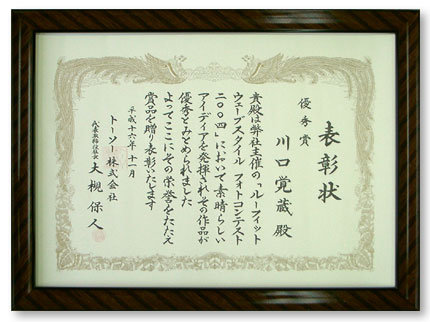 表彰状
優秀賞
川口覚蔵殿
貴殿は弊社主催の「ルーフィット
ウェーブスタイル フォトコンテスト
二〇〇四」において素晴らしい
アイディアを発揮されその作品が
優秀とみとめられました
よってここにその栄誉をたたえ
賞品を贈り表彰いたします
平成十六年十一月
トーソー株式会社
代表取締役社長 大槻保人